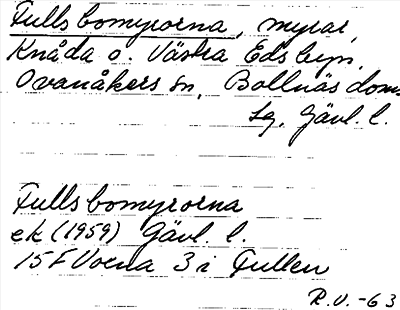 Fullsbomyrorna, myrar,
Knåda o. Västra Edsbyn,
Ovanåkers sn, Bollnäs doms
sg, Gävl. l.
Fullsbomyrorna
ek (1959) Gävl. l.
15 F Voxna 3 i Fullen
R.V. -63